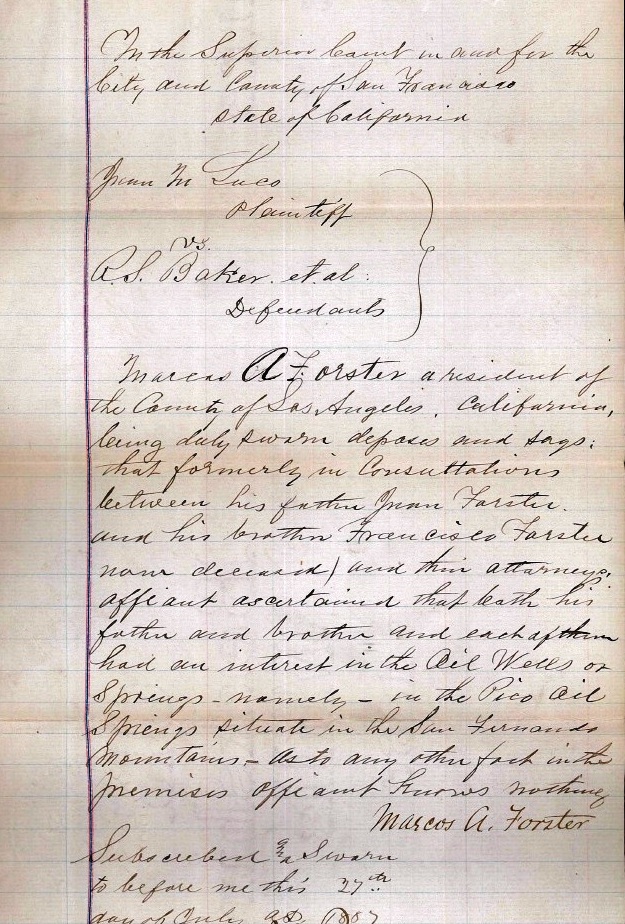 In the Superior Court in and for the
City and County of San Francisco
State of California
Juan M Luco
Plaintiff
vs.
A. S. Baker. et. al.
Defendants
Marcus A Forster a resident of
the County of Los Angeles, California,
being duly sworn deposes and says;
that formerly in Consultations
between his father Juan Forster.
and his brother Francisco Forster
now deceased) and their attorneys,
affiant ascertained that both his
father and brother and each of them
had an interest in the Oil Wells or
Springs - namely - in the Pico Oil
Springs situate in the San Fernando
Mountains - As to any other fact in the
premises affiant knows nothing
Marcos A. Forster
Subscribed & Sworn
to before me this 27th
day of July A.D. 1887